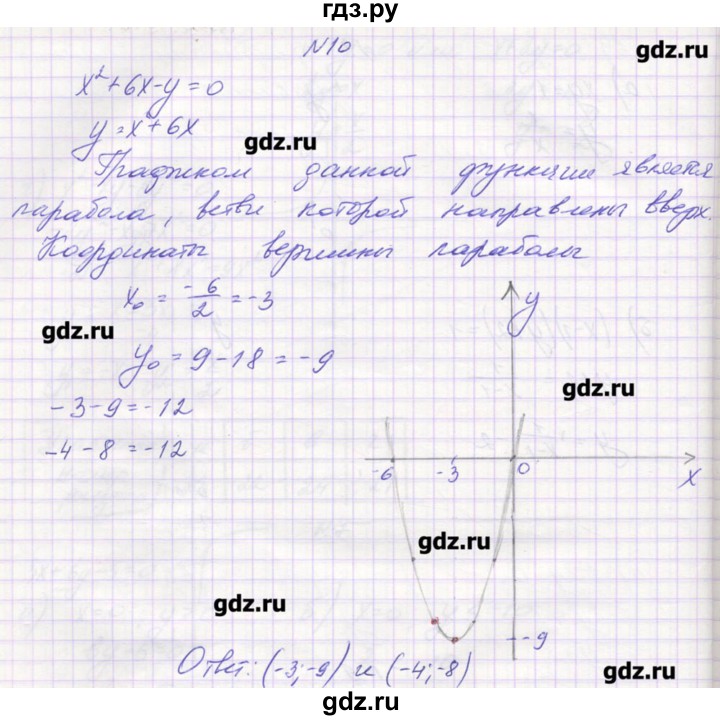 гдз.ру
N10
gdz.ru
x²+6x-y=0
y=x²+6x
gdz.ru
Графиком данной функции является
парабола, ветви которой направлены вверх.
Координаты вершины параболы
x₀ = -6/2 = -3
y
gdz.ru
y₀ = 9-18 = -9
gdz.ru
-3-9=-12
-4-8=-12
-6 -3 0 x
gdz.ru
gdz.ru
-9
Ответ: (-3;-9) и (-4;-8)
gdz.ru
gdz.ru